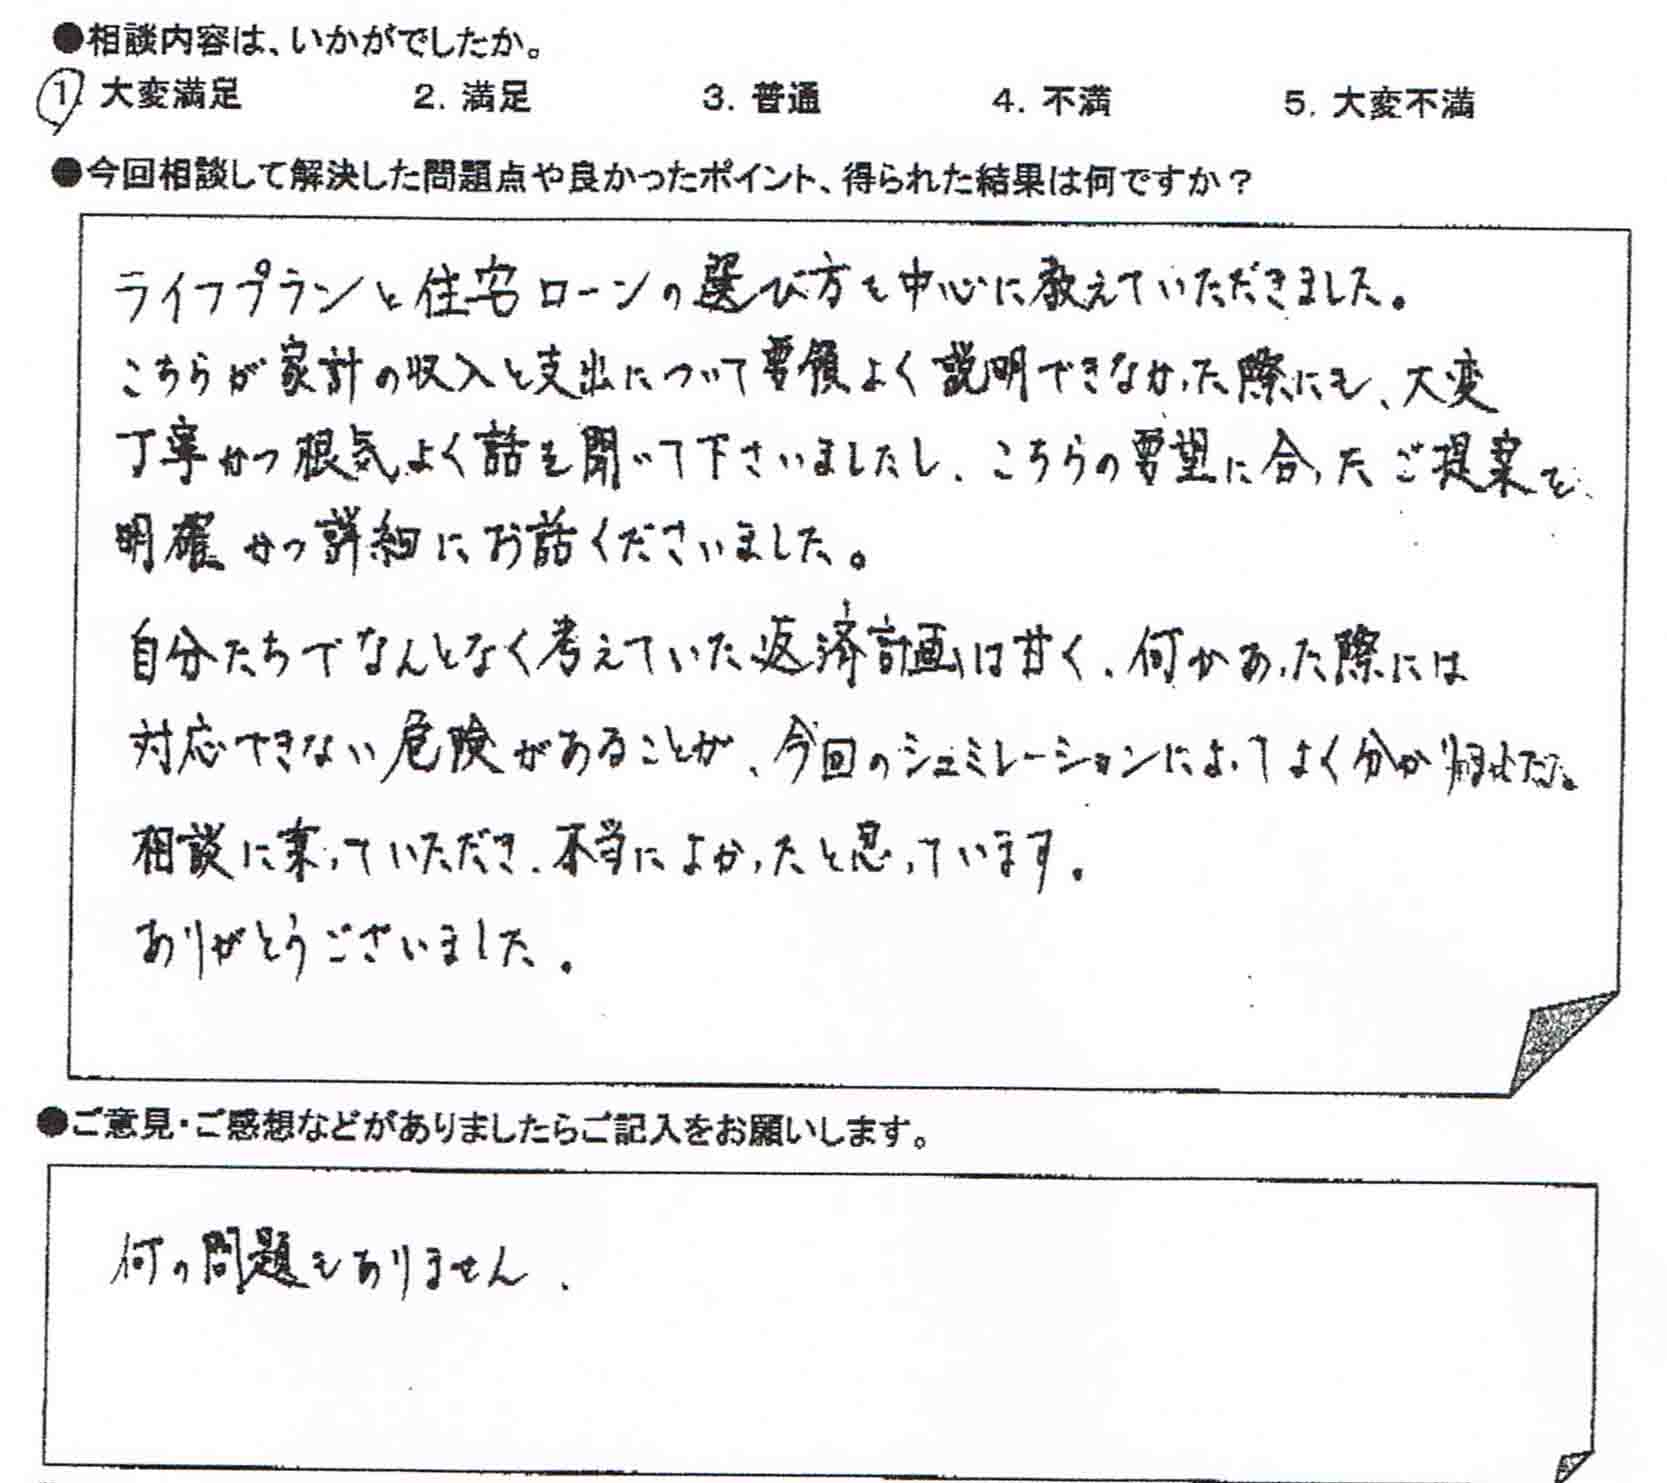 ●相談内容は、いかがでしたか。
1. 大変満足 2. 満足 3. 普通 4. 不満 5. 大変不満
●今回相談して解決した問題点や良かったポイント、得られた結果は何ですか？
ライフプランと住宅ローンの選び方を中心に教えていただきました。
こちらが家計の収入と支出について要領よく説明できなかった際にも、大変
丁寧かつ根気よく話を聞いて下さいましたし、こちらの要望に合ったご提案を
明確かつ詳細にお話くださいました。
自分たちでなんとなく考えていた返済計画は甘く、何かあった際には
対応できない危険があることが、今回のシュミレーションによってよく分かりました。
相談に乗っていただき、本当によかったと思っています。
ありがとうございました。
●ご意見・ご感想などがありましたらご記入をお願いします。
何の問題もありません。